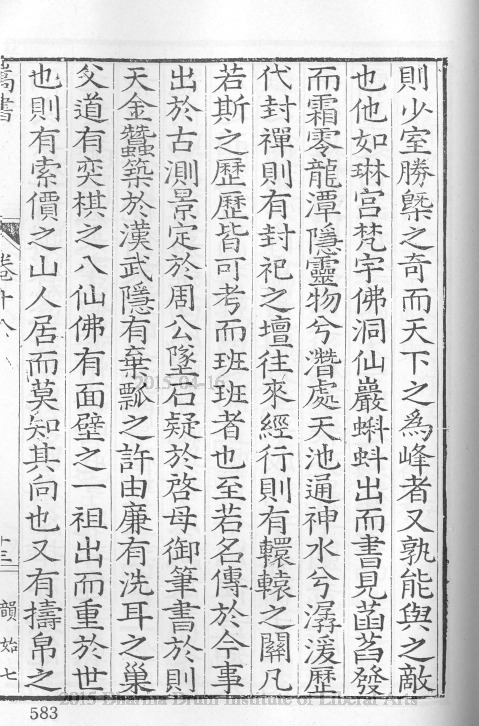 則少室勝槩之奇而天下之為峰者又孰能與之敵
也他如琳宫梵宇佛洞仙巖蝌蚪出而書見菡萏發
而霜零龍潭隱靈物兮潛處天池通神水兮潺湲歷
代封禪則有封祀之壇往來經行則有轘轅之關凡
若斯之歷歷皆可考而班班者也至若名傳於今事
出於古測景定於周公墜石疑於啓母御筆書於則
天金蠶築於漢武隱有棄瓢之許由廉有洗耳之巢
父道有奕棋之八仙佛有面壁之一祖出而重於世
也則有索價之山人居而莫知其向也又有擣帛之
嵩書
卷十八
十三
韻始七
583
2015-04-16
2015 Dharma Drum Institute of Liberal Arts